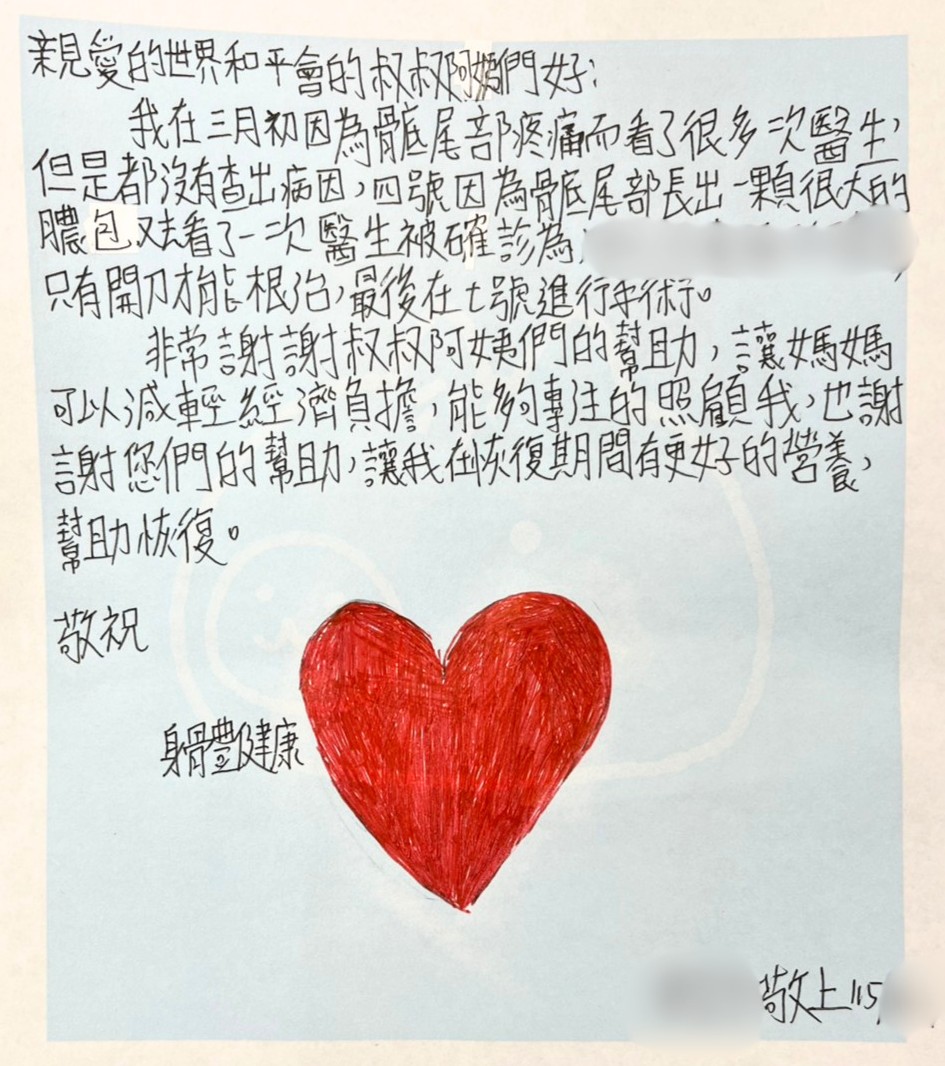 親愛的世界和平會的叔叔阿姨們好：
我在三月初因為骨底尾部疼痛而看了很多次醫生，
但是都沒有查出病因，四號因為骨底尾部長出一顆很大的
膿包又去看了一次醫生被確診為
只有開刀才能根治，最後在七號進行手術。
非常謝謝叔叔阿姨們的幫助，讓媽媽
可以減輕經濟負擔，能夠專注的照顧我，也謝
謝您們的幫助，讓我在恢復期間有更好的營養，
幫助恢復。
敬祝
身體健康
敬上 115